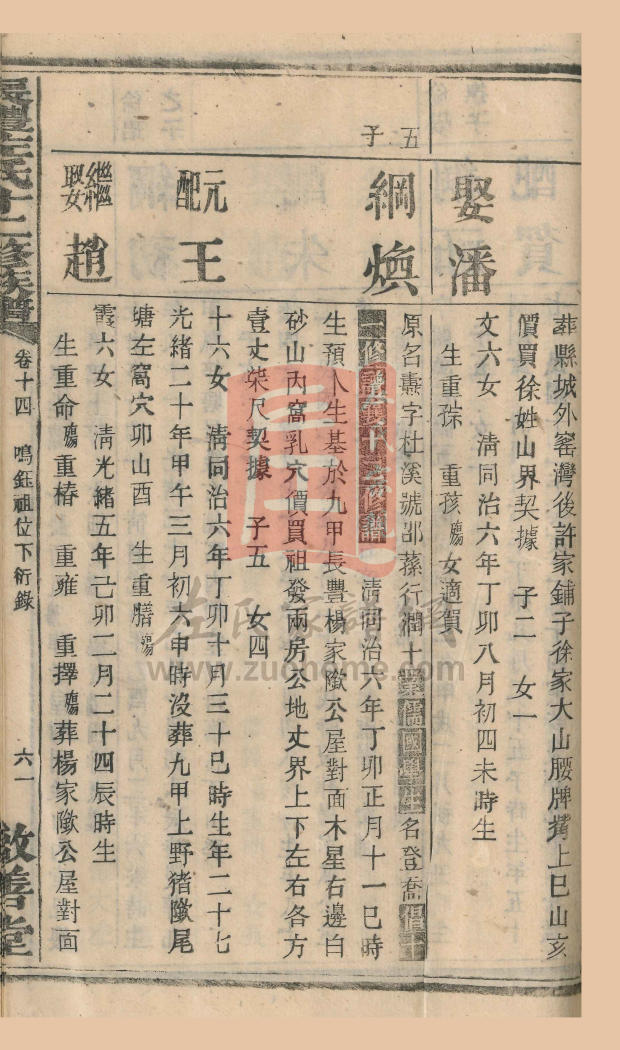 葬縣城外窰灣後許家鋪子徐家大山腰牌 上巳山亥
價買徐姓山界契據 子二 女一
娶潘
文六女 淸同治六年丁卯八月初四未時生
生重孮 重孩殤女適賀
五子
綱煥
原名燾字杜溪號部蓀行潤十業儒國學生名登喬
二修譜雙十三修譜 淸同治六年丁卯正月十一巳時
生預卜生基於九甲長豐楊家隞公屋對面木星右邊白
砂山內窩乳穴價買祖發兩房公地丈界上下左右各方
壹丈柒尺契據 子五 女四
元配王
十六女 淸同治六年丁卯十月三十巳時生年二十七
光緒二十年甲午三月初六申時沒葬九甲上野猪隞尾
塘左窩穴卯山酉 生重膳殤
繼娶趙
霞六女 淸光緒五年己卯二月二十四辰時生
生重命殤重椿 重雍 重擇殤葬楊家隞公屋對面
長豐左氏十二修族譜
卷十四 鳴鈺祖位下衍錄
六一
敦善堂
左氏家譜網
www.zuohome.com